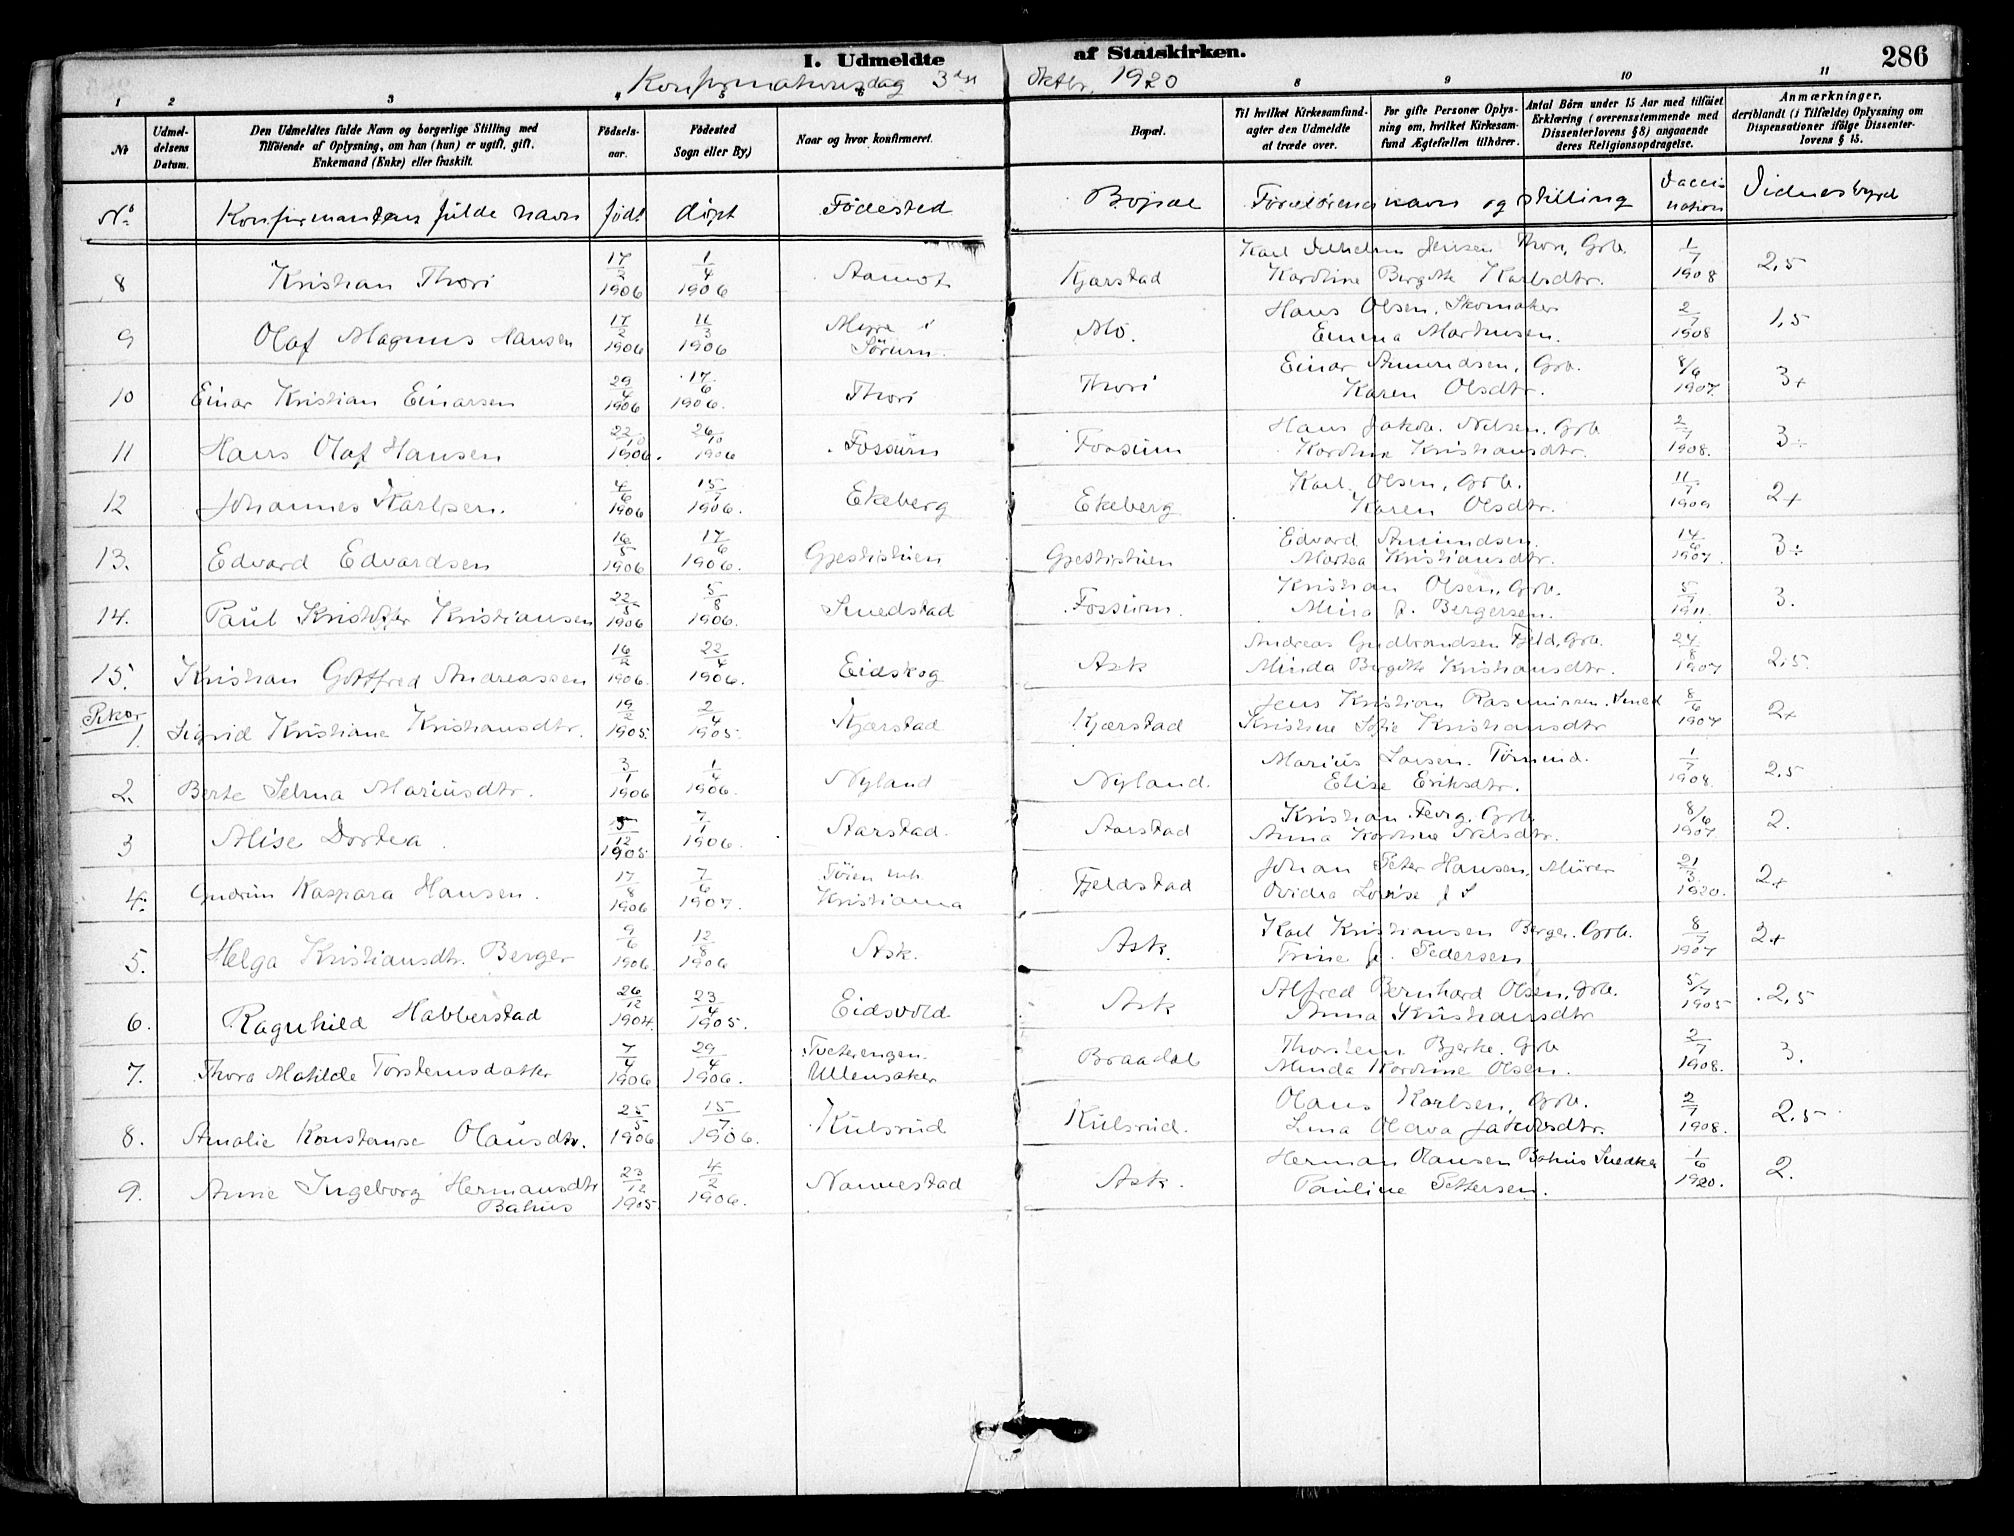 I. Udmeldte af Statskirken.
286
Konfirmationsdag 3die Oktbr. 1920
1 2 3 8 9 10 11
No
Udmeldelsens Datum.
Den Udmeldtes fulde Navn og borgerlige Stilling med Tilføiende af Oplysning, om han (hun) er ugift, gift, Enkemand (Enke) eller fraskilt.
Fødselsaar.
Fødested Sogn eller By,)
Naar og hvor konfirmeret.
Bopæl.
Til hvilket Kirkesamfund agter den Udmeldte at træde over.
For gifte Personer Oplysning om, hvilket Kirkesamfund Ægtefællen tilhører.
Antal Børn under 15 Aar med tilføiet Erklæring (overensstemmende med Dissenterlovens § 8) angaaende deres Religionsopdragelse.
Anmærkninger, deriblandt (i Tilfælde) Oplysning om Dispensationer ifølge Dissenterlovens § 15.
No. Konfirmanten fulde navn født døpt Fødested Bopæl Forældrenes navn og stilling Vaccination Vidnesbyrd
8 Kristian Thori 17/2 1906 1/4 1906 Aamot Kjærstad Karl Vilhelm Jensen Thori, Grb. Karoline Bergitte Karlsdtr. 1/7 1908 2,5
9 Olaf Magnus Hansen 17/2 1906 11/3 1906 Myra i Sørum. Mo. Hans Olsen, Skomaker Emma Martinsen. 2/7 1908 1,5
10 Einar Kristian Einarsen 29/4 1906 17/6 1906. Thori Thori Einar Amundsen, Grb. Karen Olsdtr. 8/6 1907 3+
11 Hans Olaf Hansen 22/10 1906. 26/10 1906 Fossum Fossum Hans Jakob Nilsen, Grb Karoline Kristiansdtr. 2/7 1908. 3÷
12 Johannes Karlsen. 4/6 1906 15/7 1906. Ekeberg Ekeberg Karl Olsen, Grb. Karen Olsdtr. 11/7 1909 2+
13. Edvard Edvardsen 16/5 1906 17/6 1906. Gjestistuen Gjestistuen Edvard Amundsen. Martea Kristiansdtr. 14/6 1907. 3÷
14. Paul Kristoffer Kristiansen 22/5 1906 5/8 1906. Smedstad Fossum. Kristian Olsen, Grb. Mina f. Bergersen. 5/7 1911. 3.
15. Kristian Gottfred Andreassen 16/2 1906. 22/4 1906. Eidskog Ask Andreas Gudbrandsen Fjeld, Grb. Minda Bergitte Kristiansdtr. 24/8 1907 2,5.
Piker
1. Sigrid Kristiane Kristiansdtr. 19/2 1905. 2/4 1905. Kjærstad Kjærstad Jens Kristian Rasmussen. Smed Kristine Sofie Kristiansdtr 8/6 1907 2+
2. Berte Selma Mariusdtr. 3/1 1906 1/4 1906. Nyland Nyland. Marius Larsen. Elise Eriksdtr. 1/7 1908. 2,5
3 Alise Dortea 5/12 1905. 7/1 1906. Aarstad. Aarstad Kristian Grb. Anna Karoline Nilsdtr. 8/6 1907 2.
4. Gudrun Kaspara Hansen. 17/8 1906 7/6 1907. Tøien Kristiania Fjeldstad Johan Peter Hansen, Murer Ovidia Lovise 21/3 1920. 2+
5. Helga Kristiansdtr. Berger 9/6 1906. 12/8 1906 Ask. Ask. Karl Kristiansen Berger. Grb. Trine f. Pedersen 8/7 1907 2+
6. Ragnhild Habberstad 26/12 1904. 23/4 1905. Eidsvold Ask Alfred Bernhard Olsen, Grb. Anna Kristiansdtr 5/7 1905 2,5
7. Thora Matilde Torstensdatter 7/4 1906 29/4 1906. Tveterengen. Ullensaker Braadal Thorstein Bjerke, Grb Minda Karoline Olsen. 2/7 1908. 3.
8. Amalie Konstanse Olausdtr. 25/5 1906 15/7 1906. Kulsrud Kulsrud. Olaus Karlsen, Grb. Lina Olava Jakobsdtr. 2/7 1908. 2,5
9. Anne Ingeborg Hermansdtr Bahus 23/12 1905. 4/2 1906. Nannestad Ask. Herman Olausen Bahus Snedker Pauline Pettersen. 1/6 1920. 2.